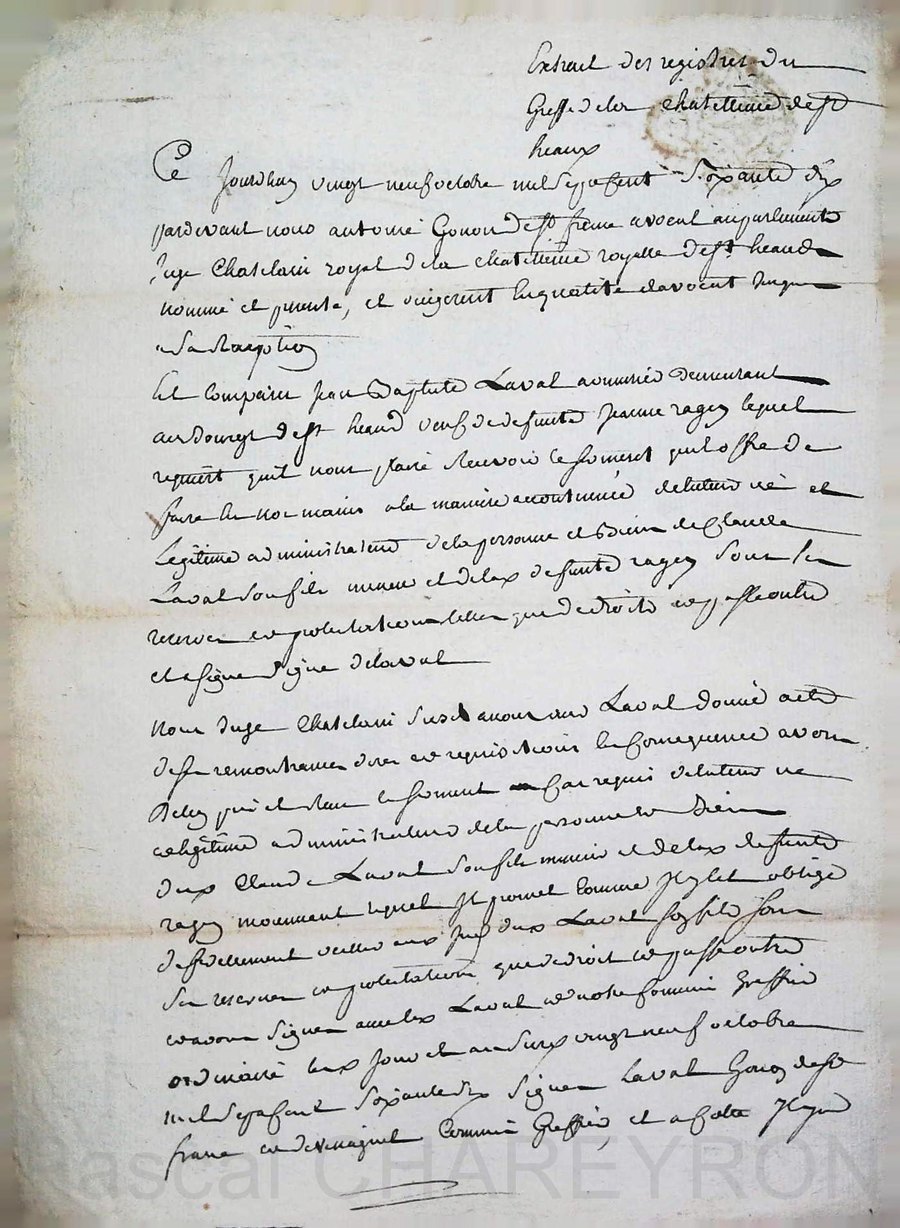 Extrait des registres du
Greffe de la Chatellenie de st
heaux
Ce Jourdhuy vingt neuf octobre mil sept cent soixante dix
pardevant nous antoine Gonon de st frenne avocat au parlement
Juge Chatelain royal de la chatellenie royalle de st heand
nommé et et en qualité davocat
a sa reception
Et Comparu Jean Baptiste Laval demeurant
au bourg de st heand veuf de defunte Jeanne ragey lequel
requiert quil nous plaise recevoir le serment quil offre de
faire en nos mains a la maniere accoutumée de tuteur né et
Legitime administrateur de la personne et Biens de Claude
Laval son fils mineur et de lad defunte ragey sous les
reserves et protestations telles que de droit et passe outre
et a signé signé delaval
Nous Juge Chatelain susd avons aud Laval donné acte
de ses remontrances dires et requisitions En Consequence avons
de luy pris et recu le serment En cas requis de tuteur né
et legitime administrateur de la personne et Biens
dud Claude Laval son fils mineur et de lad defunte
ragey moyennant lequel Il promet Comme Il est obligé
de fidellement veiller aux dud Laval son fils sous
les reserves et protestations que de droit et passe outre
et avons signé avec led Laval et notre Commis Greffier
ordinaire les jour et an susd vingt neuf octobre
mil sept cent soixante dix signé Laval Gonon de st
frenne et Commis Greffier, et a Cotté
Pascal CHAREYRON